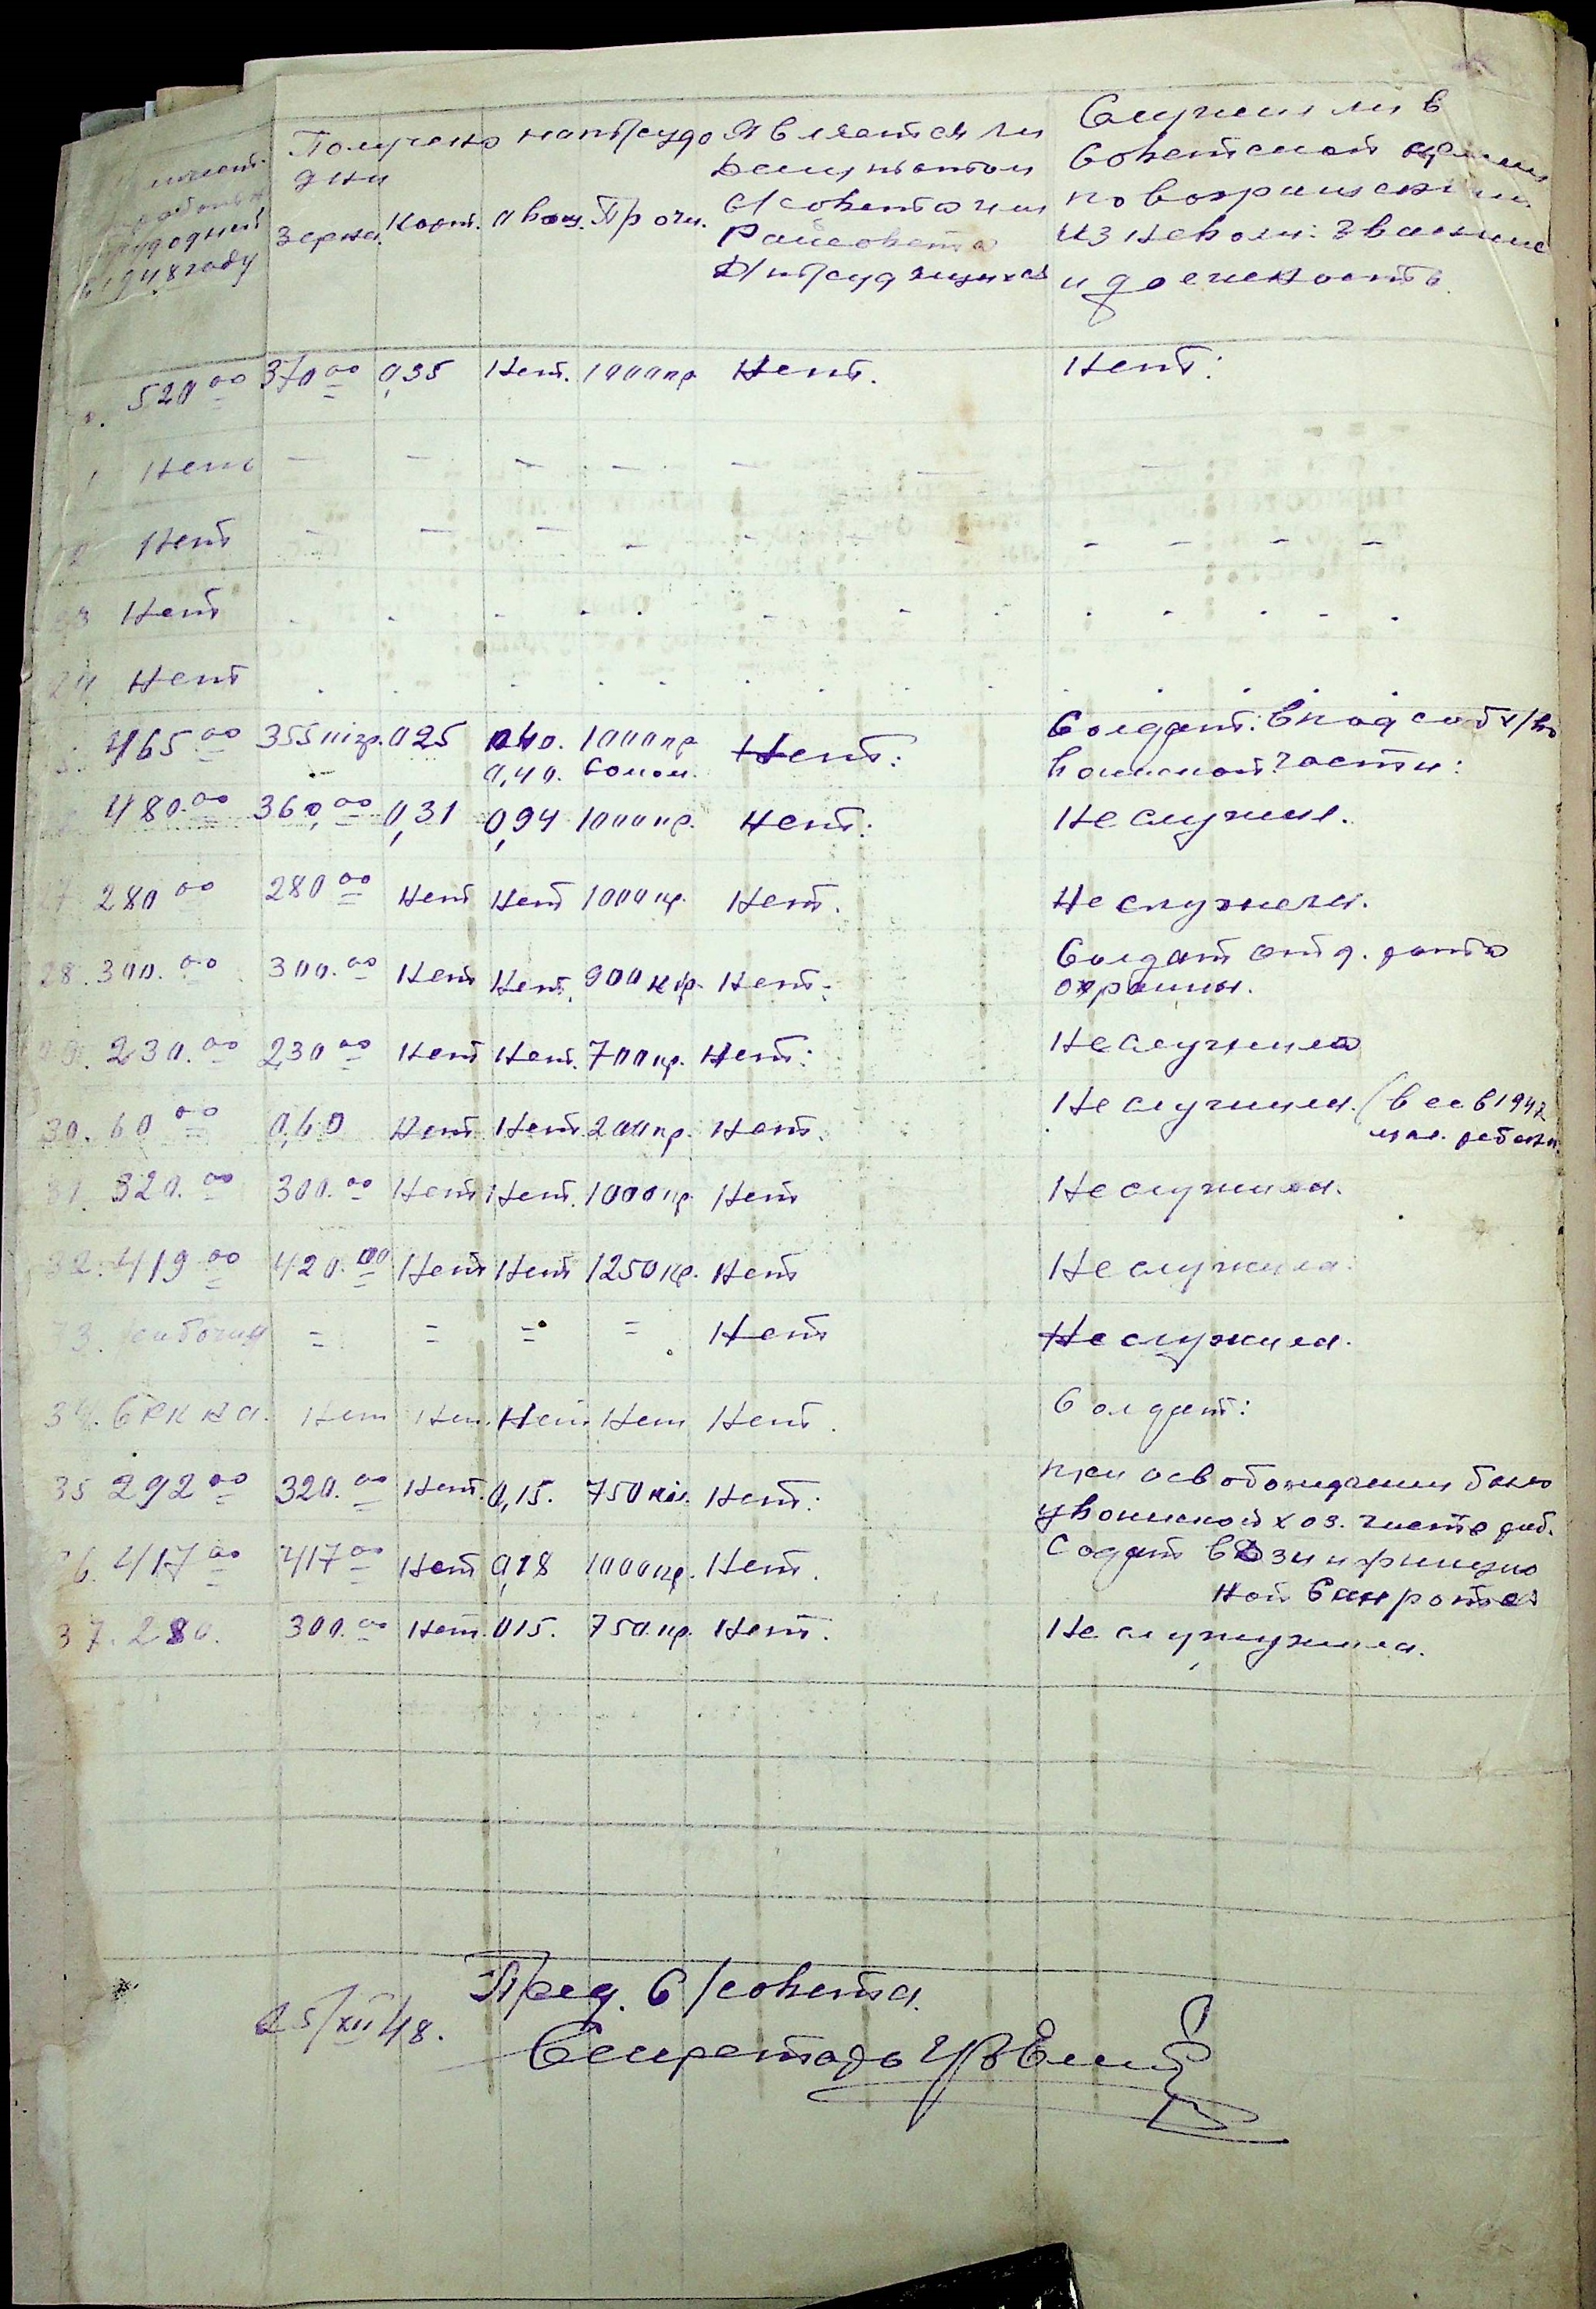 трудодней
в 1948 году
Получено на трудо
дни
Зерна. Карт. Авощ. Проч.
Является ли
Депутатом
С/советом или
Райсовета
Д/трудящихся
Служил ли в
Советской армии
по возращении
из неволи: звание
и должность
520 00 370 00 0,35 Нет. 1000 гр Нет. Нет:
Нет — — — — —
Нет - - - - - - - - - - -
23 Нет
24 Нет
465 00 355 025 0,40. 1000 гр Нет: Солдат: в подсоб х/во
0,40. Солом. воинской части:
480.00 360,00 0,31 0,94 1000 гр. Нет: Не служил.
27 280 00 280 00 Нет Нет 1000 гр. Нет. Не служила.
28. 300. 00 300. 00 Нет Нет. 900 кгр. Нет. Солдат отд. рота
охраны.
29. 230. 00 230 00 Нет Нет. 700 гр. Нет: Не служила
30. 60 00 0,60 Нет Нет. 200 гр. Нет. Не служила. (в 1947
31. 320. 00 300. 00 Нет Нет. 1000 гр Нет Не служила.
32. 419 00 420. 00 Нет Нет 1250 гр. Нет Не служила.
33. = = = = Нет Не служила.
34. Нет Нет. Нет Нет Нет. Солдат:
35 292 00 320. 00 Нет. 0,15. 750 Нет: при освобождении было
у воинской хоз. части раб.
36. 417 00 417 00 Нет 0,18 1000 гр. Нет. Содат в Дзинфикцио
ной Сан роте
37. 280. 300. 00 Нет. 015. 750. гр. Нет. Не служужила.
Пред. С/совета.
25/XII 48.
Секретарь